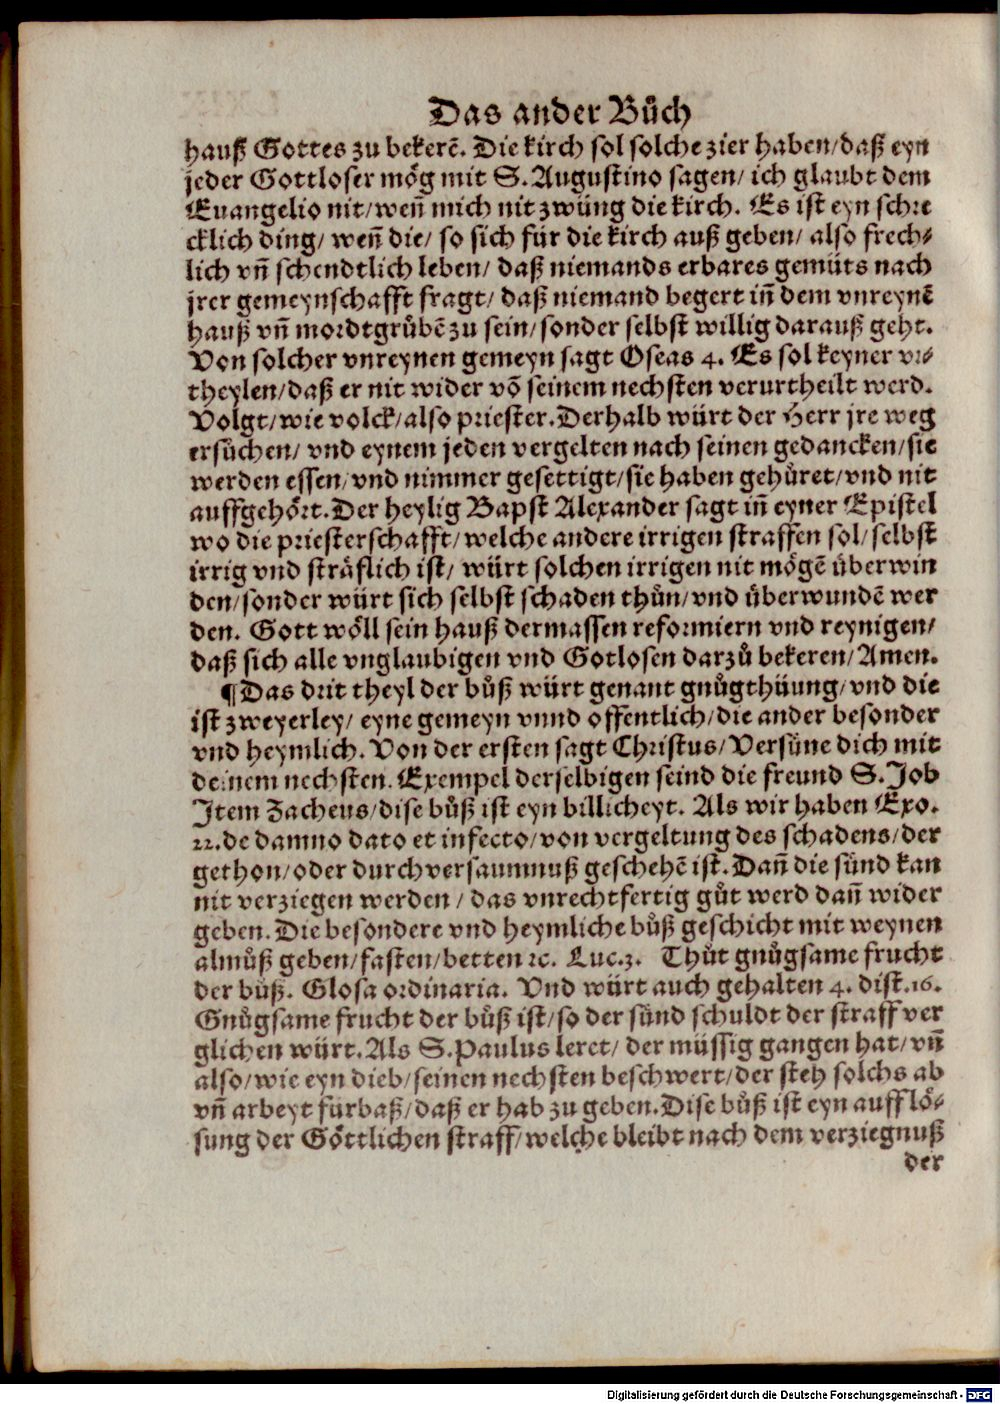 Das ander Bůch
hauß Gottes zu bekerẽ. Die kirch sol solche zier haben/daß eyn
jeder Gottloser mög mit S. Augustino sagen/ ich glaubt dem
Euangelio nit/weñ mich nit zwüng die kirch. Es ist eyn schre
cklich ding/ weñ die/ so sich für die kirch auß geben/ also frech⸗
lich vñ schendtlich leben/ daß niemands erbares gemüts nach
jrer gemeynschafft fragt/ daß niemand begert iñ dem vnreynẽ
hauß vñ mordtgrůbẽ zu sein/sonder selbst willig darauß geht.
Von solcher vnreynen gemeyn sagt Oseas 4. Es sol keyner vr⸗
theylen/daß er nit wider võ seinem nechsten verurtheilt werd.
Volgt/wie volck/also priester. Derhalb würt der Herr jre weg
ersůchen/ vnd eynem jeden vergelten nach seinen gedancken/sie
werden essen/vnd nimmer gesettigt/sie haben gehůret/vnd nit
auffgehört. Der heylig Bapst Alexander sagt iñ eyner Epistel
wo die priesterschafft/welche andere irrigen straffen sol/selbst
irrig vnd sträflich ist/ würt solchen irrigen nit mögẽ überwin
den/sonder würt sich selbst schaden thůn/vnd überwundẽ wer
den. Gott wöll sein hauß dermassen reformiern vnd reynigen/
daß sich alle vnglaubigen vnd Gotlosen darzů bekeren/Amen.
¶Das drit theyl der bůß würt genant gnůgthüung/vnd die
ist zweyerley/ eyne gemeyn vnnd offentlich/die ander besonder
vnd heymlich. Von der ersten sagt Christus/Versüne dich mit
deinem nechsten. Exempel derselbigen seind die freund S. Job
Item Zacheus/dise bůß ist eyn billicheyt. Als wir haben Exo.
22.de damno dato et infecto/von vergeltung des schadens/der
gethon/oder durch versaumnuß geschehẽ ist. Dañ die sünd kan
nit verziegen werden / das vnrechtfertig gůt werd dañ wider
geben. Die besondere vnd heymliche bůß geschicht mit weynen
almůß geben/fasten/betten ꝛc. Luc.3. Thůt gnůgsame frucht
der bůß. Glosa ordinaria. Vnd würt auch gehalten 4. dist.16.
Gnůgsame frucht der bůß ist/so der sünd schuldt der straff ver
glichen würt. Als S. Paulus leret/ der müssig gangen hat/vñ
also/wie eyn dieb/seinen nechsten beschwert/der steh solchs ab
vñ arbeyt fürbaß/daß er hab zu geben. Dise bůß ist eyn auff lö⸗
sung der Göttlichen straff/welche bleibt nach dem verziegnuß
der
Digitalisierung gefördert durch die Deutsche Forschungsgemeinschaft - DFG